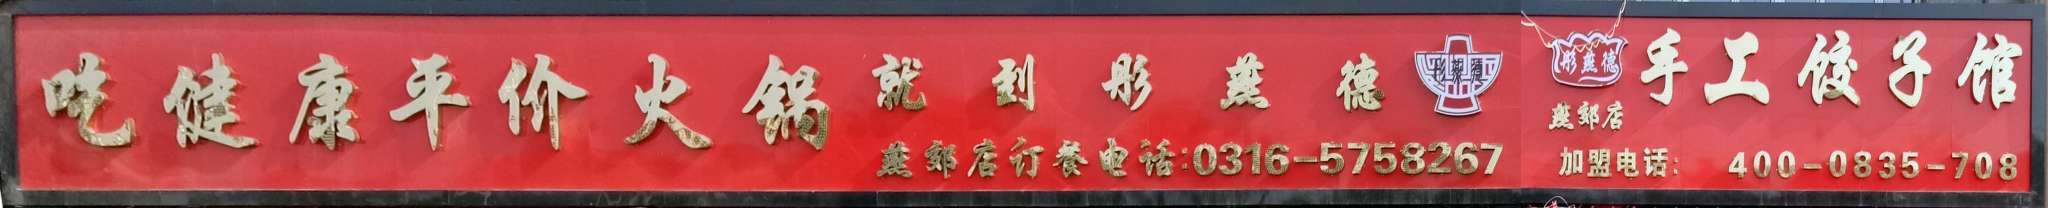 吃健康平价火锅就到彤燕德
燕郊店订餐电话:0316-5758267
彤燕德
手工饺子馆
燕郊店
加盟电话: 400-0835-708